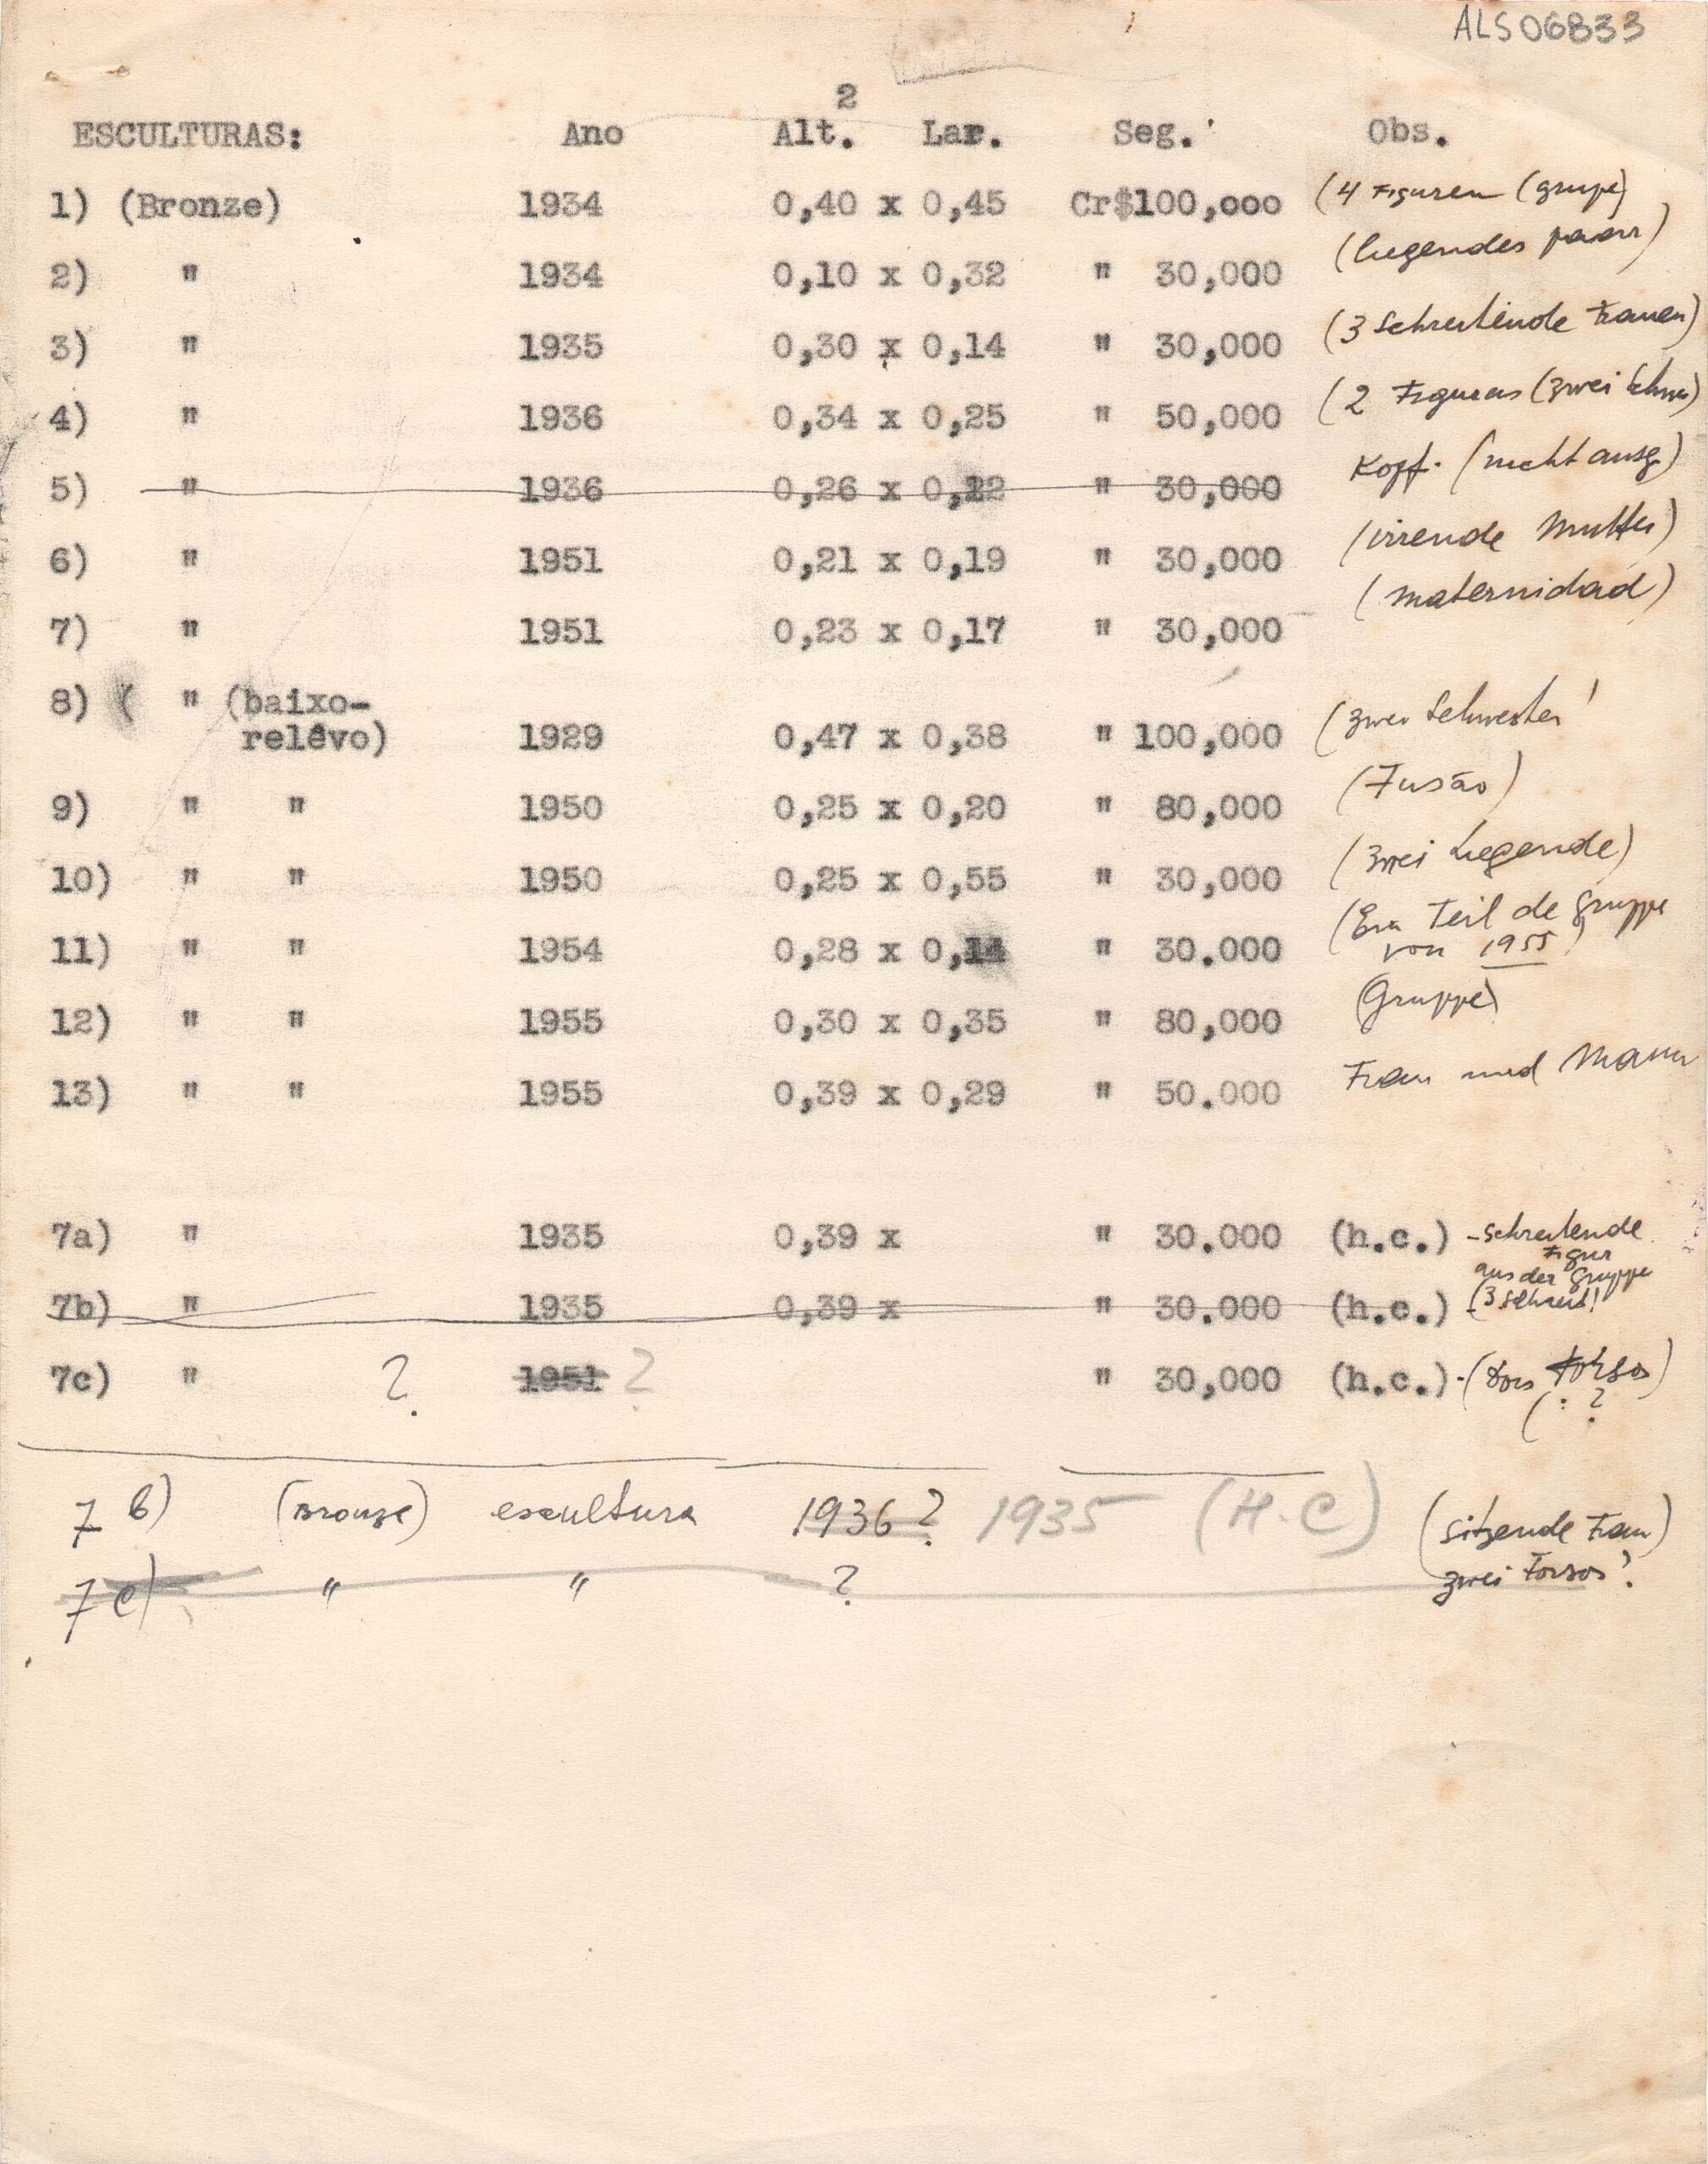 ALS06833
2
ESCULTURAS: Ano Alt. Lar. Seg. Obs.
1) (Bronze) 1934 0,40 x 0,45 Cr$100,000 (4 Figuren (grupe)
2) " 1934 0,10 x 0,32 " 30,000 (liegendes paar)
3) " 1935 0,30 x 0,14 " 30,000 (3 Schreitende Frauen)
4) " 1936 0,34 x 0,25 " 50,000 (2 Figuras (zwei Schw)
5) " 1936 0,26 x 0,22 " 30,000 Kopf. (nicht ausg)
6) " 1951 0,21 x 0,19 " 30,000 (irrende Mutter)
7) " 1951 0,23 x 0,17 " 30,000 (maternidad)
8) ( " (baixo-
relêvo) 1929 0,47 x 0,38 " 100,000 (zwei Schwester
9) " " 1950 0,25 x 0,20 " 80,000 (Fusão)
10) " " 1950 0,25 x 0,55 " 30,000 (zwei Liegende)
11) " " 1954 0,28 x 0,14 " 30.000 (Ein Teil de Gruppe
von 1955)
12) " " 1955 0,30 x 0,35 " 80,000 (Gruppe)
13) " " 1955 0,39 x 0,29 " 50.000 Frau und Mann
7a) " 1935 0,39 x " 30.000 (h.c.) - schreitende
Figur
aus der Gruppe
7b) " 1935 0,39 x " 30.000 (h.c.) - (3 Schreit!
7c) " ? 1951 ? " 30,000 (h.c.) - (Dois Torsos)
( : ?
7 b) (Bronze) escultura 1936? 1935 (H.C) (sitzende Frau)
7 c) " " ? zwei Torsos?